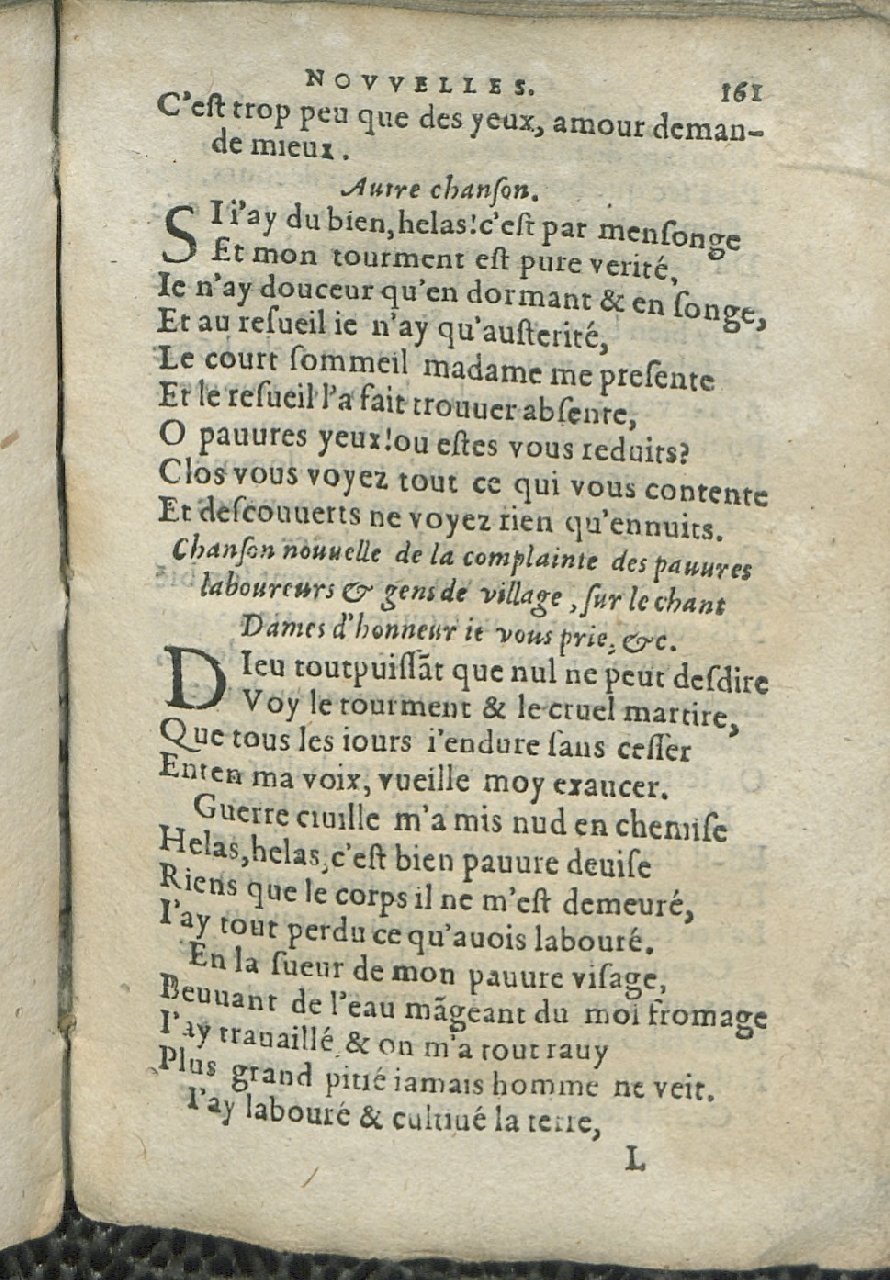 NOVVELLES. 161
C'eſt trop peu que des yeux, amour deman-
de mieux.
Autre chanſon.
SI i'ay du bien, helas! c'eſt par menſonge
Et mon tourment eſt pure verité,
Ie n'ay douceur qu'en dormant & en ſonge,
Et au reſueil ie n'ay qu'auſterité,
Le court ſommeil madame me preſente
Et le reſueil l'a fait trouuer abſente,
O pauures yeux! ou eſtes vous reduits?
Clos vous voyez tout ce qui vous contente
Et deſcouuerts ne voyez rien qu'ennuits.
Chanſon nouuelle de la complainte des pauures
laboureurs & gens de village, ſur le chant
Dames d'honneur ie vous prie, &c.
DIeu toutpuiſſãt que nul ne peut deſdire
Voy le tourment & le cruel martire,
Que tous les iours i'endure ſans ceſſer
Enten ma voix, vueille moy exaucer.
Guerre ciuille m'a mis nud en chemiſe
Helas, helas, c'eſt bien pauure deuiſe
Riens que le corps il ne m'eſt demeuré,
I'ay tout perdu ce qu'auois labouré.
En la ſueur de mon pauure viſage,
Beuuant de l'eau mãgeant du moi fromage
I'ay trauaillé & on m'a tout rauy
Plus grand pitié iamais homme ne veit.
I'ay labouré & cultiué la terre,
L